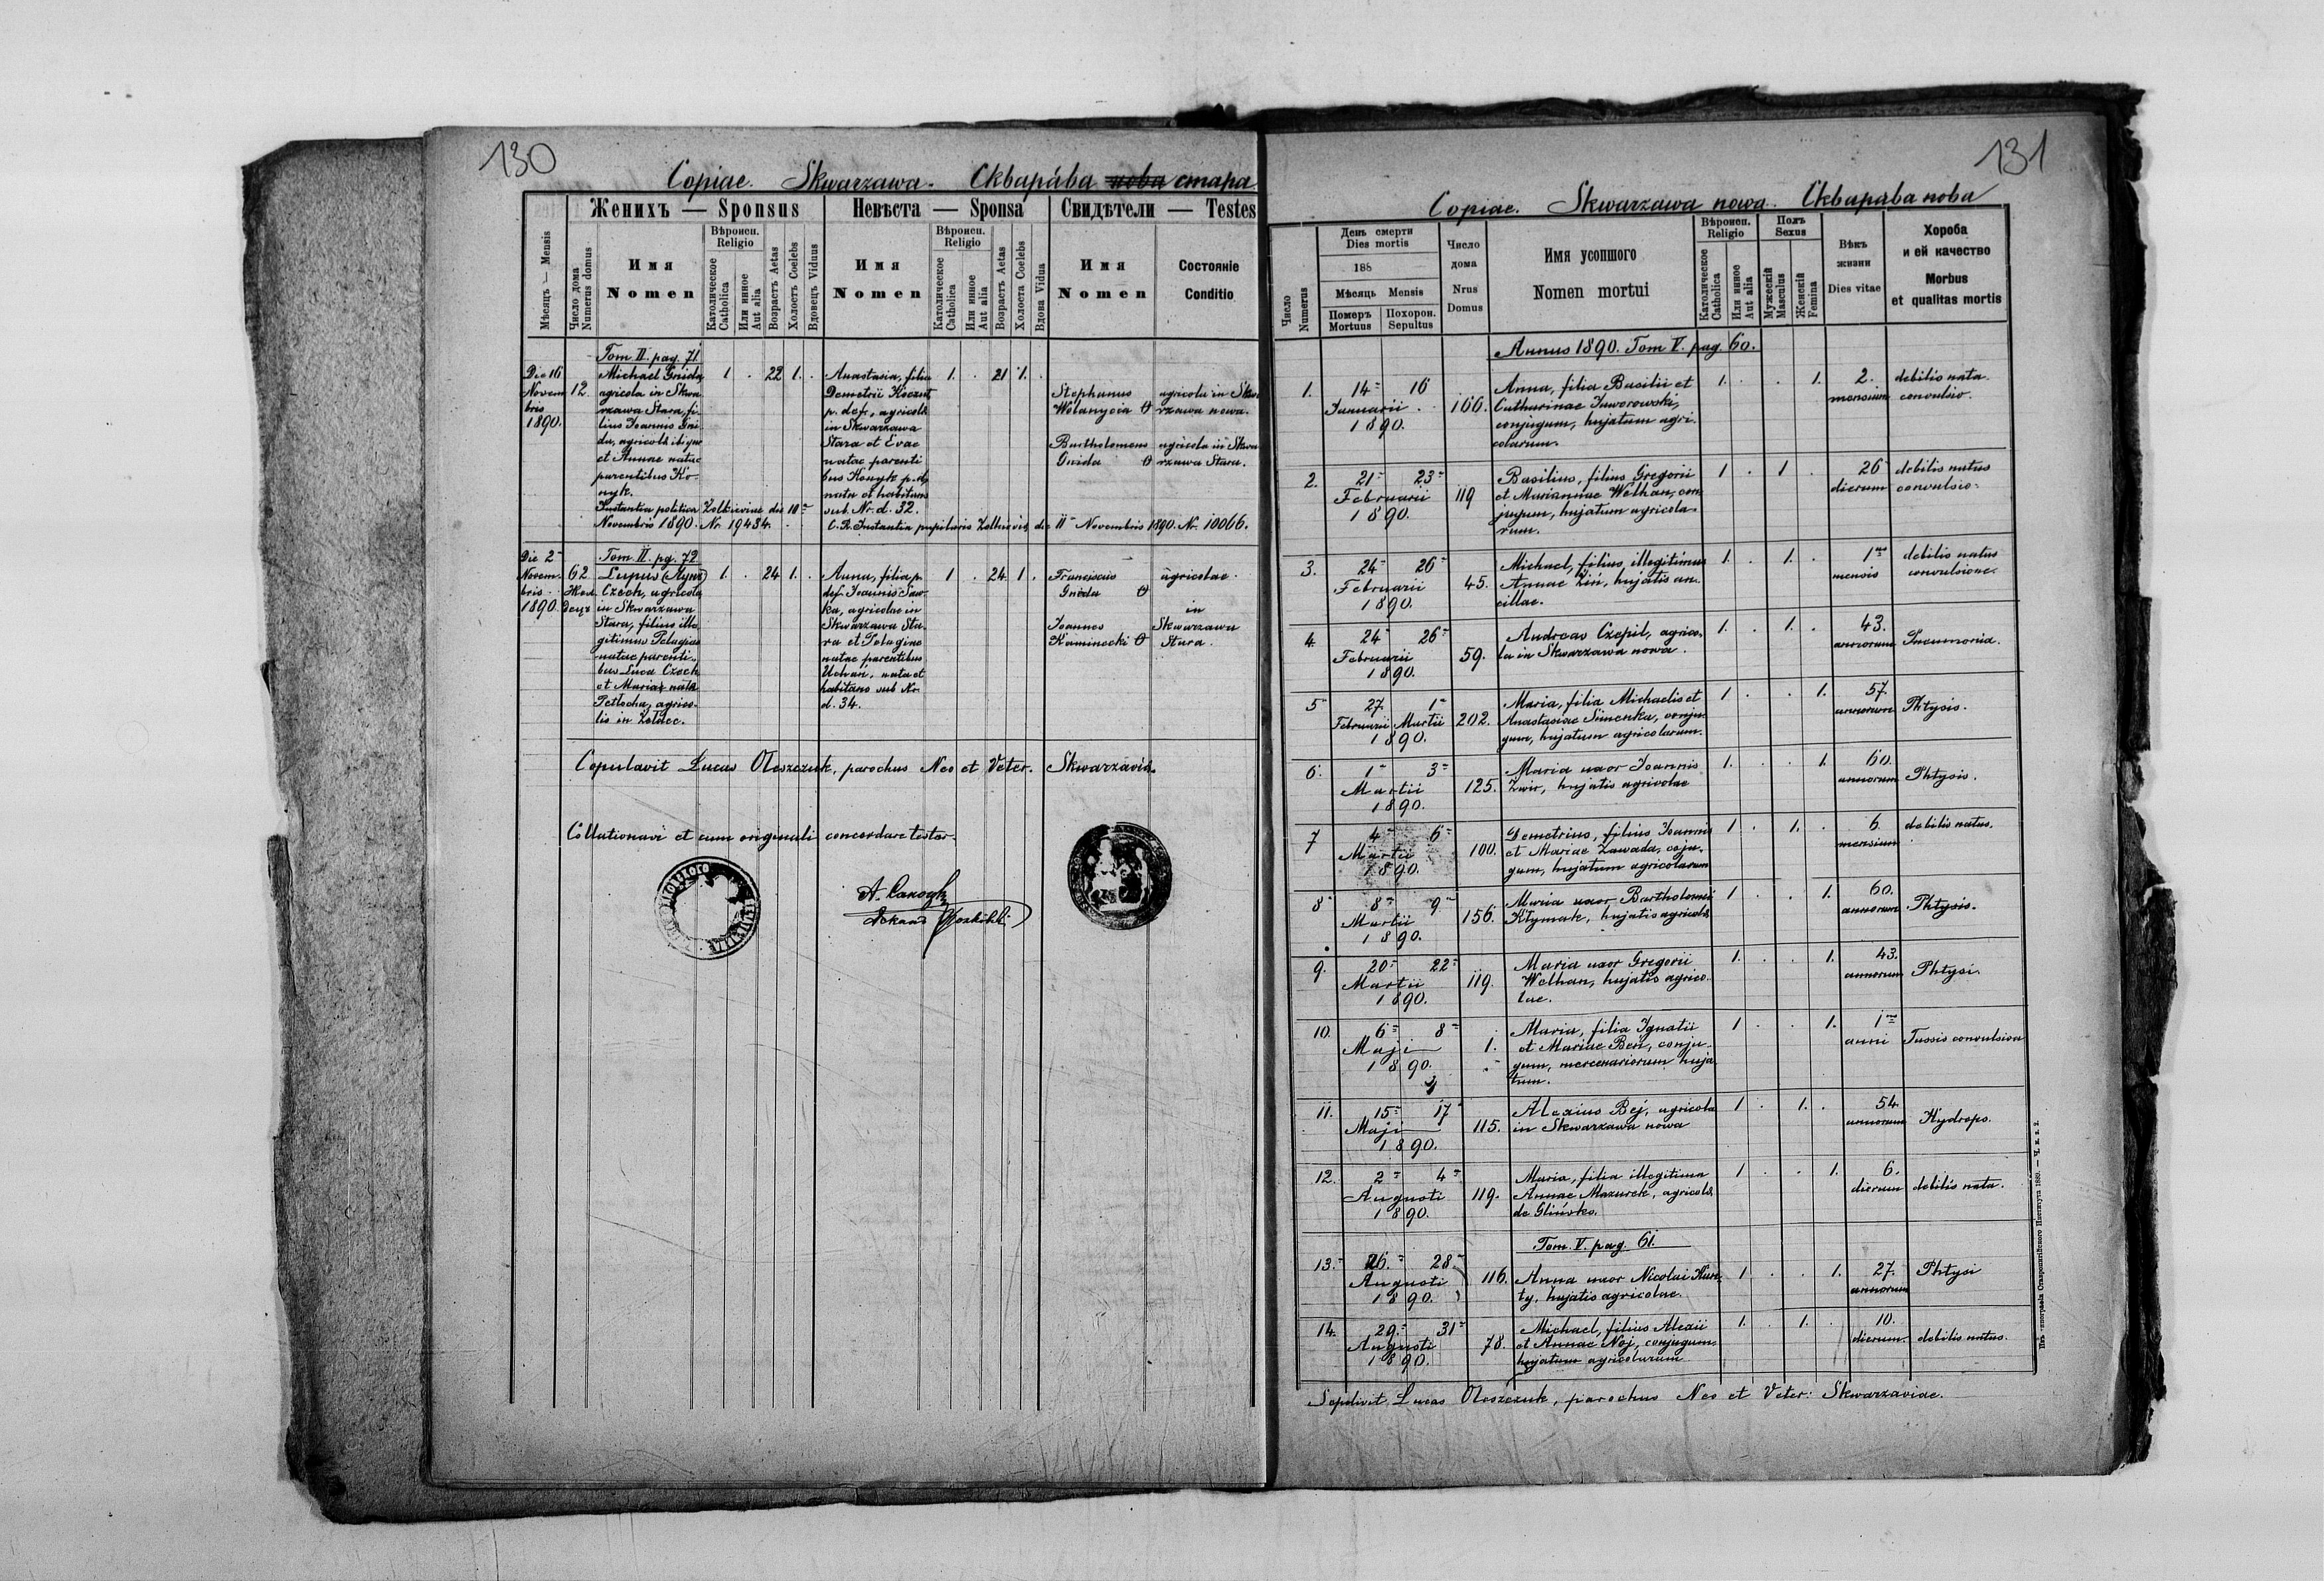 130
Copiae. Skwarzawa. Скварáва нова стара
Женихъ — Sponsus
Невѣста — Sponsa
Свидѣтели — Testes
Мѣсяцъ — Mensis
Число дома
Numerus domus
Имя
Nomen
Вѣроисп.
Religio
Католическое
Catholica
Или инное
Aut alia
Возрастъ Aetas
Холостъ Coelebs
Вдовецъ Viduus
Имя
Nomen
Вѣроисп.
Religio
Католическое
Catholica
Или инное
Aut alia
Возрастъ Aetas
Холоста Coelebs
Вдова Vidua
Имя
Nomen
Состоянiе
Conditio
Tom II. pag. 71
Die 16
Novem
bris
1890.
12.
Michael Gnida
agricola in Skwa
rzawa Stara, fi
lius Joannis Gni
da, agricolā ibique
et Annae natae
parentibus Ko-
nyk.
1 . 22 1. .
Anastasia, filia
Demetrii Koczut
p. def. agricolā
in Skwarzawa
Stara et Evae
natae parenti
bus Konyk p. d.
nata et habitans
sub. Nr. d. 32.
1. . 21 1. .
Stephanus
Wolanycia
agricola in Skwa
rzawa nowa.
Bartholomeus
Gnida
agricola in Skwa
rzawa Stara.
Instantia politica Zolkieviae die 10
Novembris 1890. Nr. 19484.
C. R. Instantia pupilaris Zolkieviae, die 11 Novembris 1890. Nr. 10066.
Tom. II. pg. 72
Die 2
Novem.
bris
1890.
62
Lupus
Czech, agricola
in Skwarzawa
Stara, filius ille
gitimus Pelagiae
natae parenti-
bus Luca Czech
et Mariae natā
Petlocha, agrico-
lis in Zołdec.
1. . 24 1. .
Anna, filia p.
def. Joannis Saw-
ka, agricolae in
Skwarzawa Sta-
ra et Pelagiae
natae parentibus
Uchań, nata et
habitans sub Nr.
d. 34.
1 . 24 1. .
Franciscus
Gnida
agricolae.
in
Joannes
Kaminecki
Skwarzawa
Stara.
Copulavit Lucas Oleszczuk, parochus Neo et Veter. Skwarzaviae.
Collationavi et cum originali concordare testor.
131
Copiae. Skwarzawa nowa. Скварáва нова
Число
Numerus
День смерти
Dies mortis
188
Мѣсяць Mensis
Померъ
Mortuus
Похорон.
Sepultus
Число
дома
Nrus
Domus
Имя усопшого
Nomen mortui
Вѣроисп.
Religio
Католическое
Catholica
Или инное
Aut alia
Полъ
Sexus
Мужескiй
Masculus
Женскiй
Femina
Вѣкъ
жизни
Dies vitae
Хороба
и ей качество
Morbus
et qualitas mortis
Annus 1890. Tom V. pag. 60.
1. 14 16
Januarii
1890.
166.
Anna, filia Basilii et
Catharinae Jaworowski,
conjugum, hujatum agri-
colarum.
1. . . 1.
2.
mensium
debilis nata.
convulsio.
2. 21 23
Februarii
1890.
119
Basilius, filius Gregorii
et Mariannae Welhan, con
jugum, hujatum agricola-
rum.
1 . 1 .
26
dierum
debilis natus
convulsio
3. 24 26
Februarii
1890.
45.
Michael, filius, illegitimus
Annae Ziń, hujatis an-
cillae.
1. . 1. .
1
mensis
debilis natus
convulsione.
4. 24 26
Februarii
1890.
59.
Andreas Czepil, agrico-
la in Skwarzawa nowa.
1. . 1. .
43.
annorum
Pneumonia.
5 27. 1
Februarii Martii
1890.
202.
Maria, filia Michaelis et
Anastasiae Simenka, conju-
gum, hujatum agricolarum.
1 . . 1.
57.
annorum
Phtysis.
6. 1 3
Martii
1890.
125.
Maria uxor Joannis
Zwir, hujatis agricolae
1. . . 1.
60.
annorum
Phtysis.
7 4 6
Martii
1890.
100.
Demetrius, filius Joannis
et Mariae Zawada, conju-
gum, hujatum agricolarum
1 . 1. .
6
mensium
debilis natus.
8 8 9
Martii
1890.
156.
Maria uxor Bartholomei
Klymak, hujatis agricolā
1 . . 1.
60.
annorum
Phtysis.
9. 20 22
Martii
1890.
119.
Maria uxor Gregorii
Welhan, hujatis agrico-
lae.
1. . . 1.
43.
annorum
Phtysi.
10. 6 8
Maji
1890.
1.
Maria, filia Ignatii
et Mariae Beń, conju-
gum, mercenariorum huja
tum.
1 . . 1.
1
anni
Tussis convulsiva
11. 15 17
Maji
1890.
115.
Alexius Bej, agricola
in Skwarzawa nowa
1 . 1. .
54.
annorum
Hydrops.
12. 2 4
Augusti
1890.
119.
Maria, filia illegitima
Annae Mazurek, agricolā
de Glińsko.
1 . . 1.
6.
dierum
debilis nata.
Tom. V. pag. 61.
13. 26. 28
Augusti
1890.
116.
Anna uxor Nicolai Kun-
ty, hujatis agricolae.
1 . . 1.
27.
annorum
Phtysi
14. 29. 31
Augusti
1890.
78.
Michael, filius Alexii
et Annae Noj, conjugum
hujatum agricolarum
1. . 1. .
10.
dierum.
debilis natus.
Sepelivit Lucas Oleszczuk, parochus Neo et Veter: Skwarzaviae.
Изъ типографiи Ставропигiйского Института 1880. — Ч. н. к. 2.